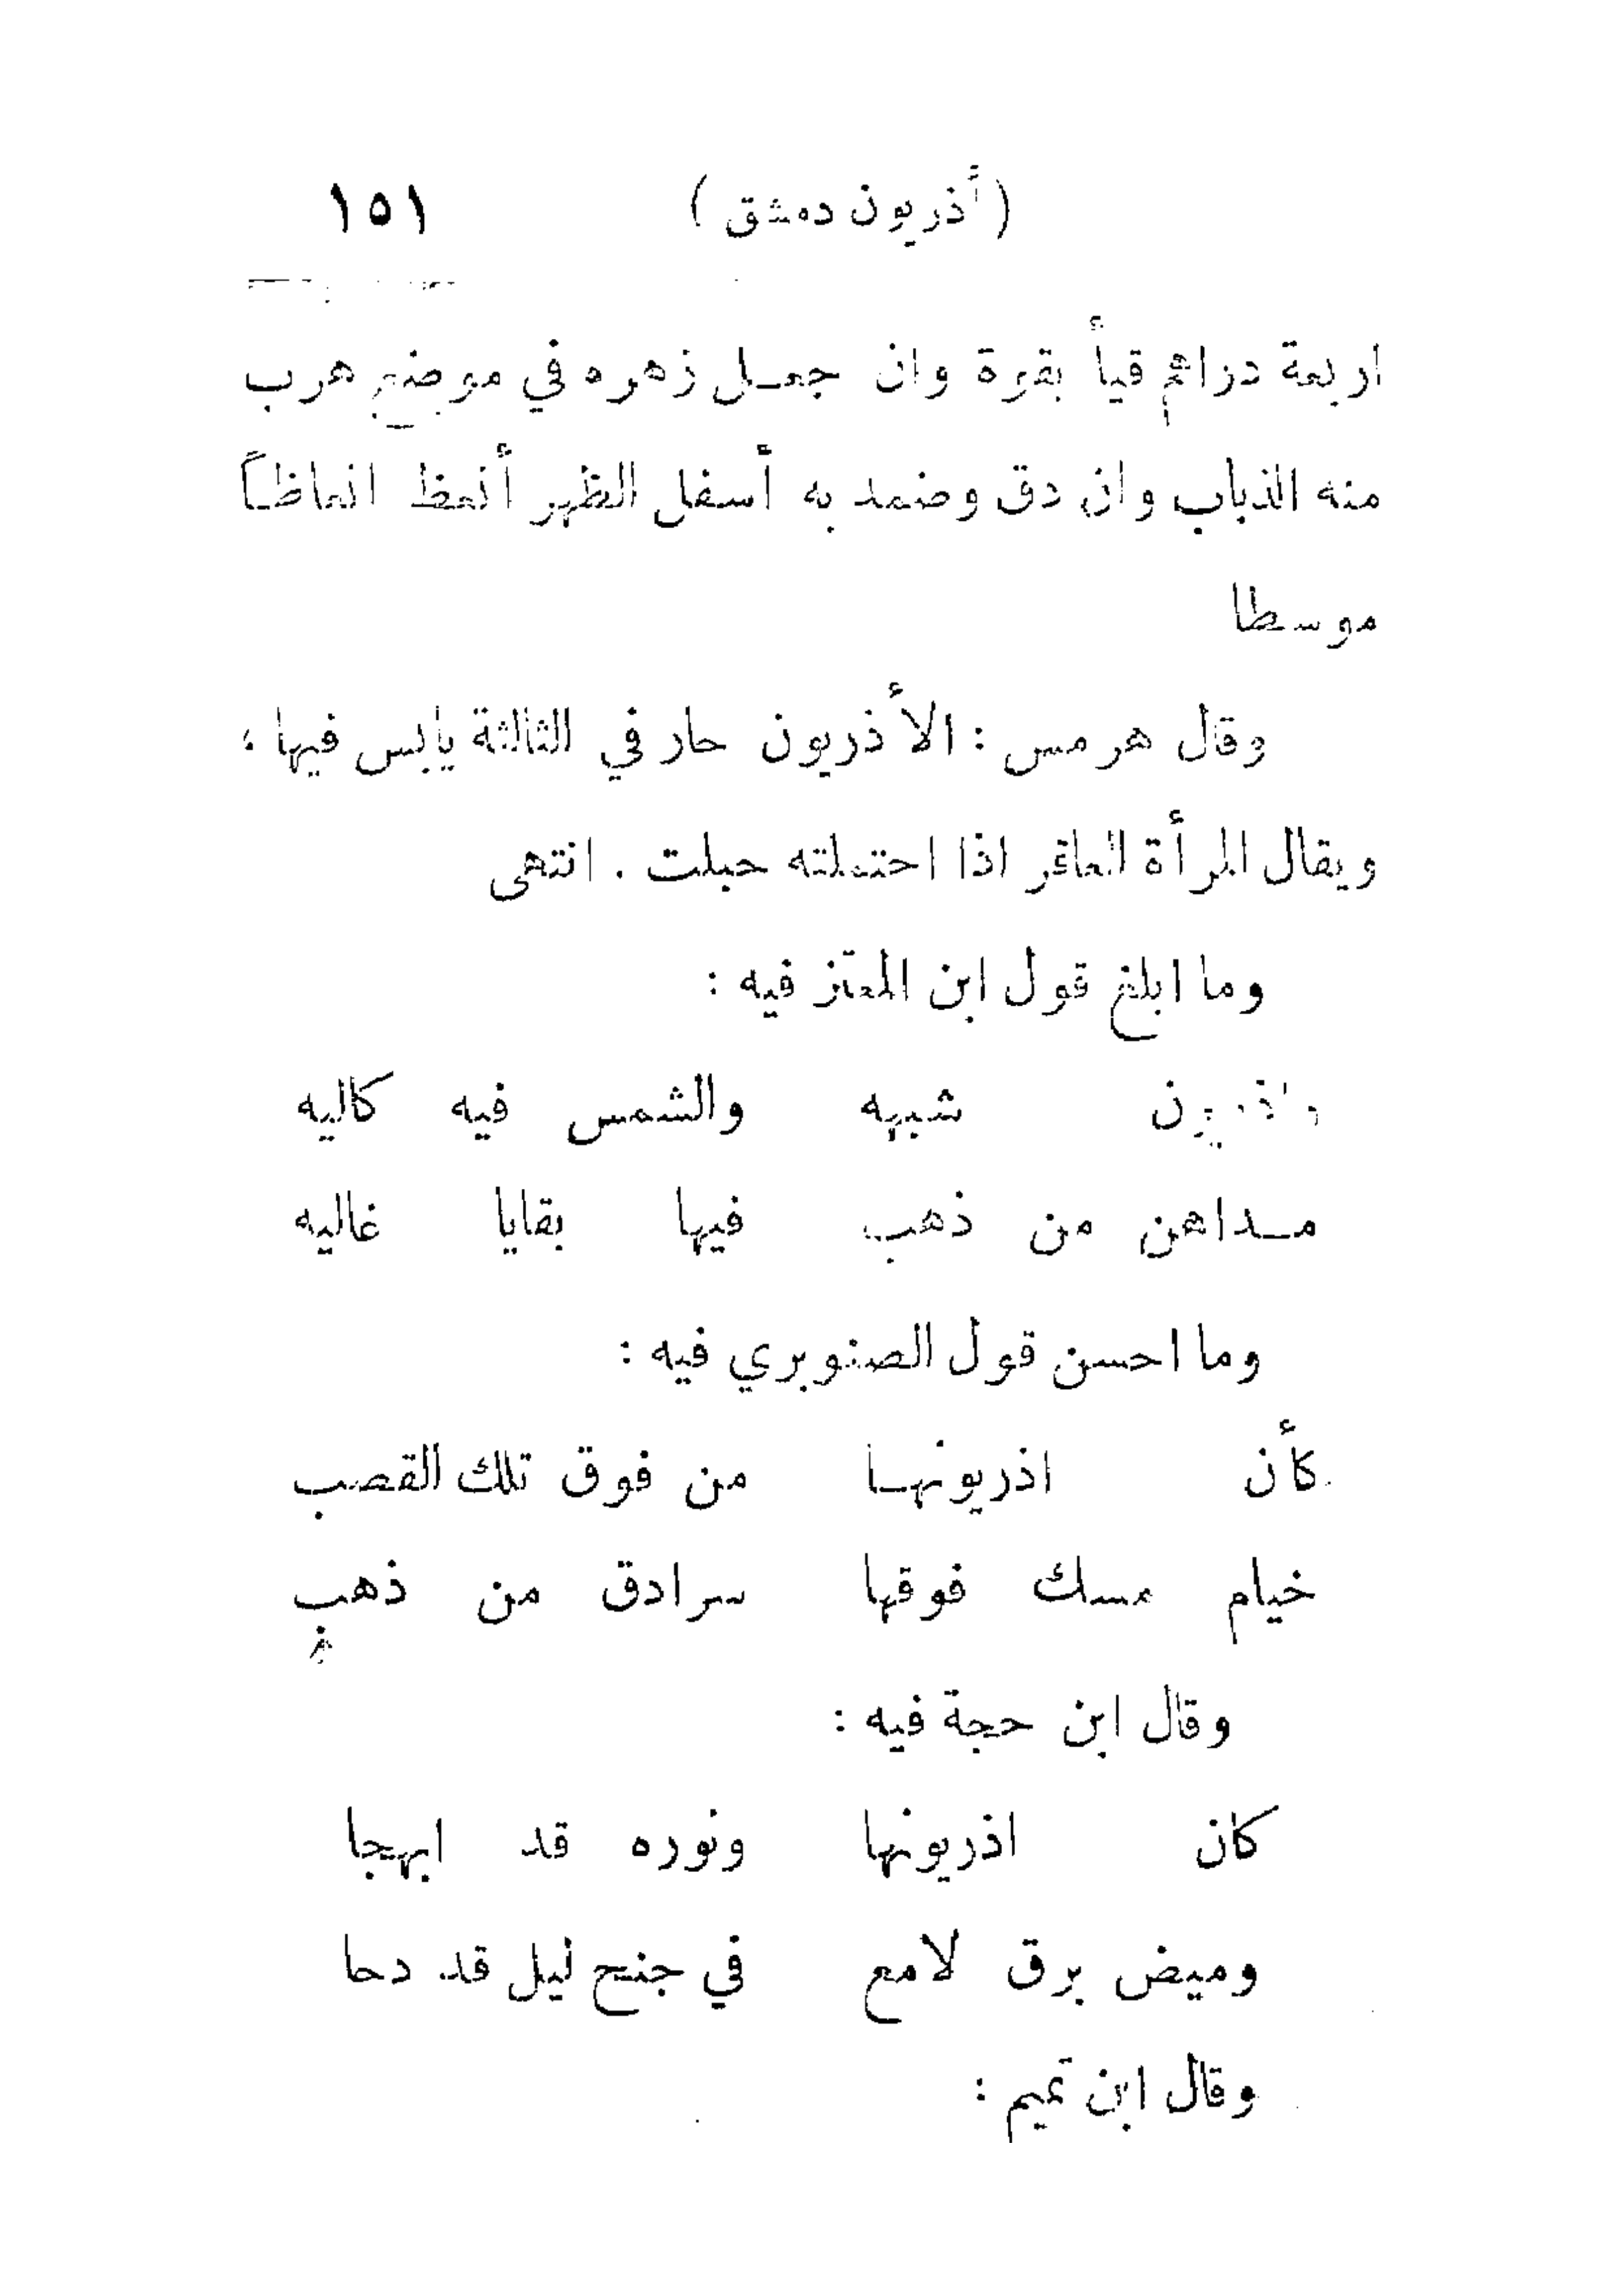 (أذريون دمشق) ١٥١
اربعة دراهم قيأ بقوة وان جعل زهره في موضع هرب
منه الذباب وان دق وضمد به أسفل الظهر أنعظ انعاظاً
موسطا
وقال هرمس : الأذريون حار في الثالثة يابس فيها ،
ويقال المرأة العاقر اذا احتملته حبلت . انتهى
وما ابلغ قول ابن المعتز فيه :
واذريون شبهه والشمس فيه كاليه
مداهن من ذهب فيها بقايا غاليه
وما احسن قول الصنوبري فيه :
كأن اذريونها من فوق تلك القصب
خيام مسك فوقها سرادق من ذهب
وقال ابن حجة فيه :
كان اذريونها ونوره قد ابهجا
وميض برق لامع في جنح ليل قد دحا
وقال ابن تميم :